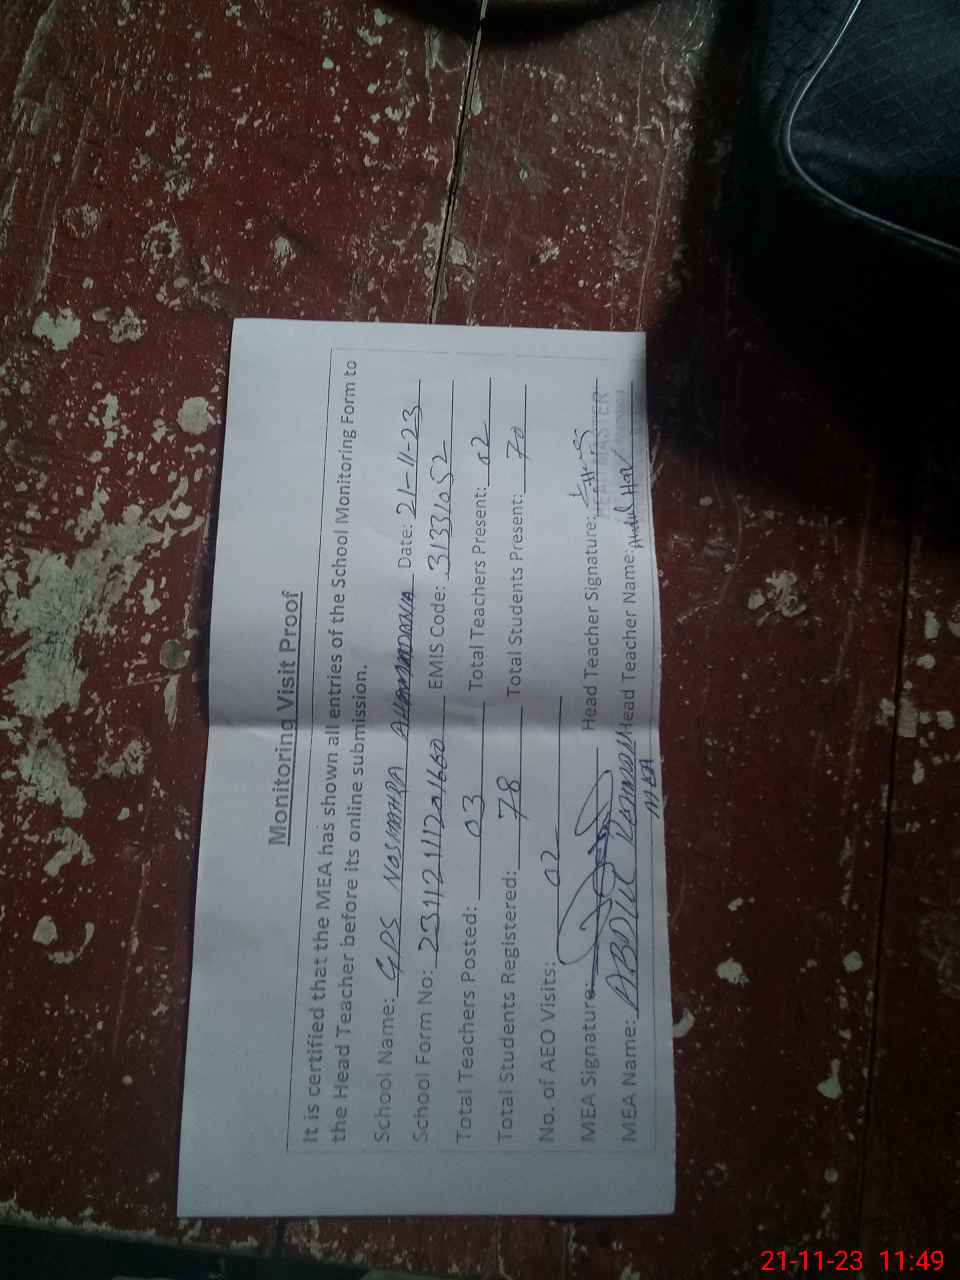 Monitoring Visit Proof
It is certified that the MEA has shown all entries of the School Monitoring Form to
the Head Teacher before its online submission.
School Name: GPS NOSHAHRA Date: 21-11-23
School Form No: 23112111201660 EMIS Code: 31331052
Total Teachers Posted: 03 Total Teachers Present: 02
Total Students Registered: 78 Total Students Present: 70
No. of AEO Visits: 02
MEA Signature: Head Teacher Signature:
HEAD MASTER
MEA Name: ABDUL Head Teacher Name: Abdul
MEA
21-11-23 11:49